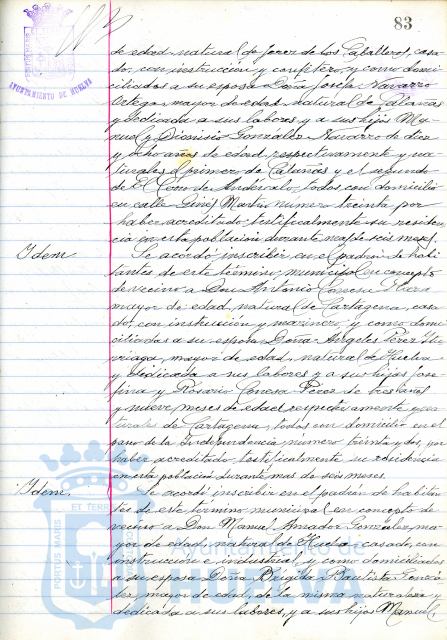 83
AYUNTAMIENTO DE HUELVA
de edad natural de Jerez de los Caballeros, casa
do, con instrucción y confitero, y como domi
ciliados a su esposa Doña Josefa Navarro
Ortega mayor de edad, natural de Calañas
y dedicada a sus labores y a sus hijos Ma
nuel y Dionisio González Navarro de diez
y ocho años de edad respectivamente y na
turales el primero de Calañas y el segundo
de El Cerro de Andévalo, todos con domicilio
en calle Ginés Martín número treinta por
haber acreditado testificalmente su residen
cia en esta población durante mas de seis meses.
Idem
Se acordó inscribir en el padrón de habi
tantes de este término municipal en concepto
de vecino a Don Antonio Conesa
mayor de edad, natural de Cartagena, casa
do, con instrucción y marinero, y como domi
ciliados a su esposa Doña Angeles Pérez
mayor de edad, natural de Huelva
y dedicada a sus labores y a sus hijos Jose
fina y Rosario Conesa Pérez de tres años
y nueve meses de edad respectivamente y na
turales de Cartagena, todos con domicilio en el
paseo de la Independencia número treinta y dos, por
haber acreditado testificalmente su residencia
en esta población durante mas de seis meses.
Idem.
Se acordó inscribir en el padrón de habitan
tes de este término municipal en concepto de
vecino a Don Manuel Amador González, ma
yor de edad, natural de Huelva, casado, con
instrucción e industrial, y como domiciliados
a su esposa Doña Brígida Bautista Gonzá
lez, mayor de edad, de la misma naturaleza y
dedicada a sus labores, y a sus hijos Manuel
PORTUS MARIS
ET TERRÆ
Ayuntamiento de